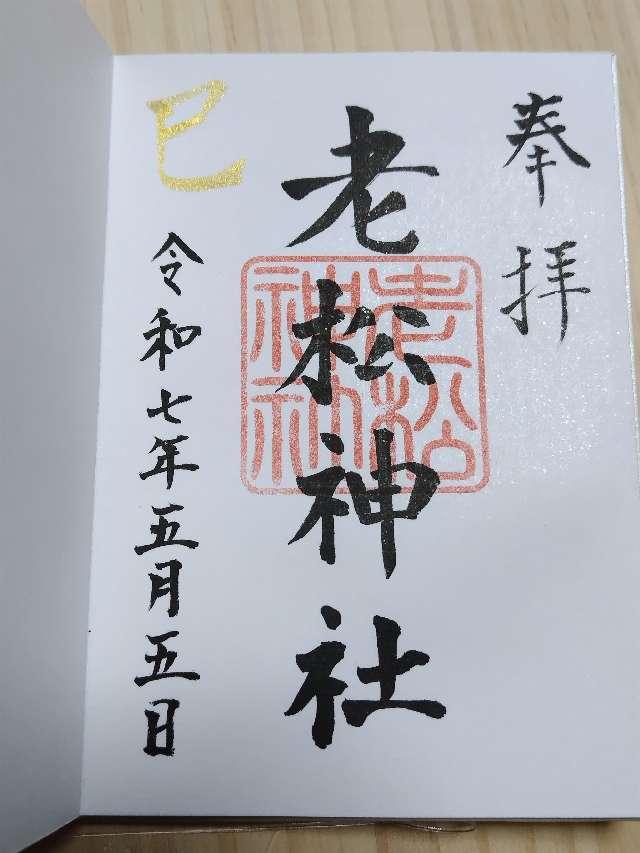 奉拝
老松神社
老松
神社
巳
令和七年五月五日